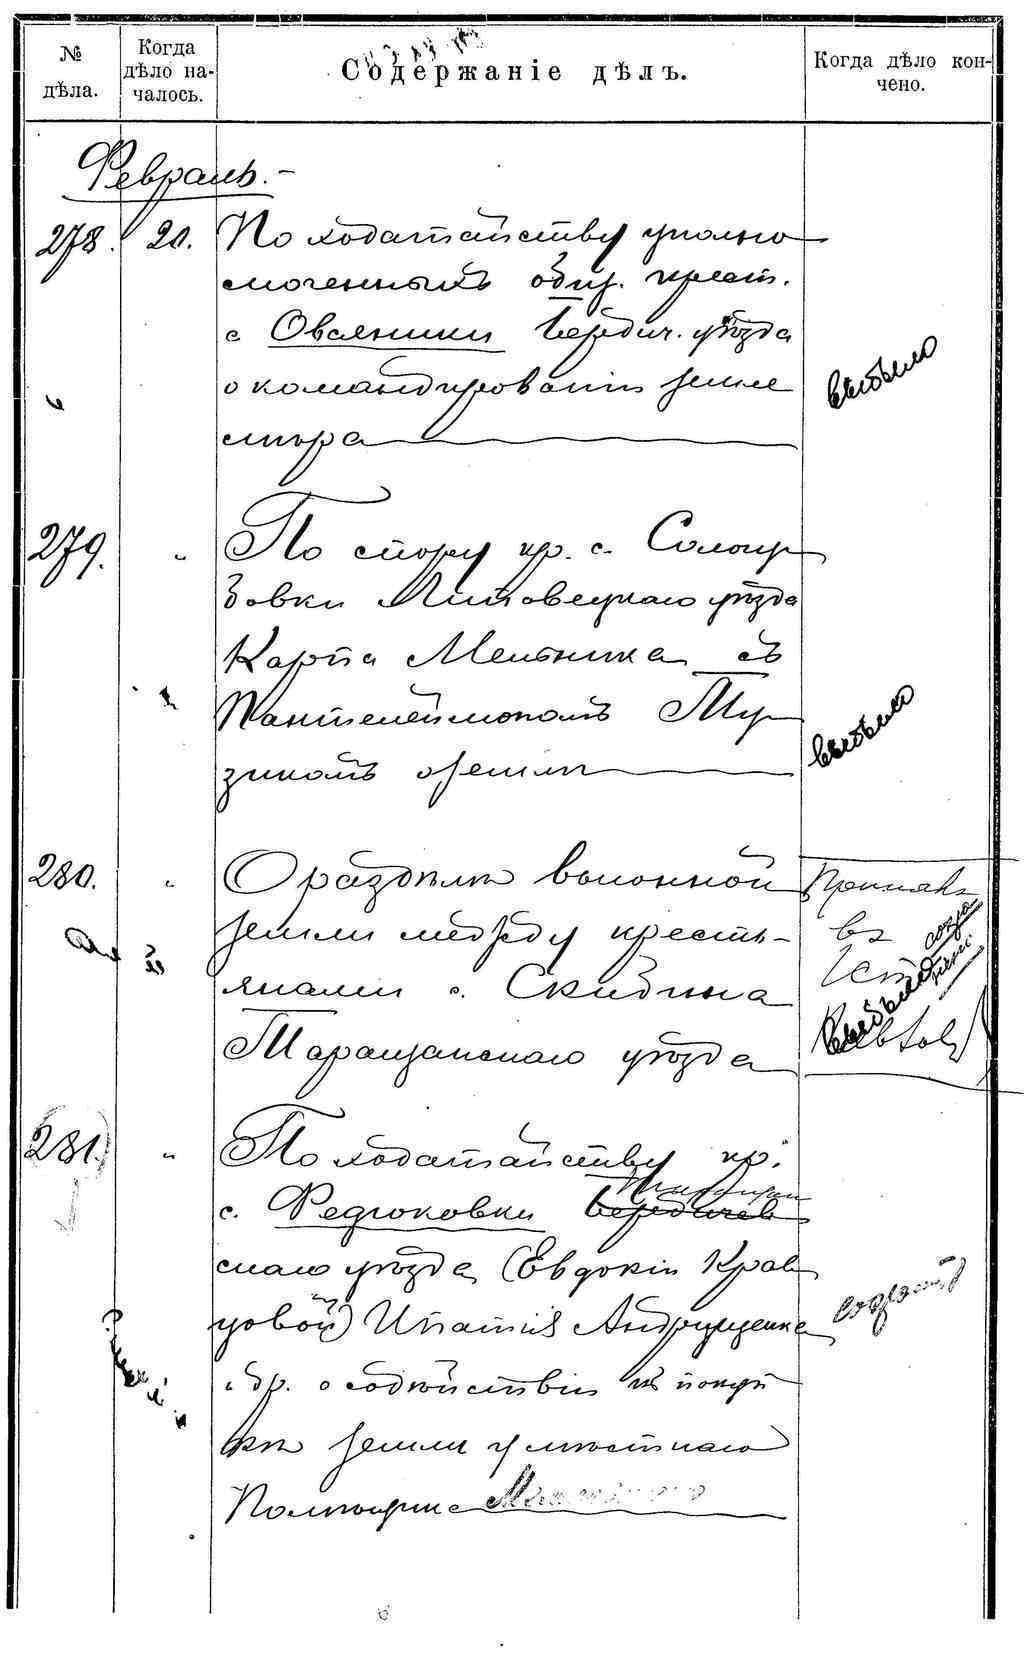 № дѣла.
Когда дѣло на-
чалось.
Содержаніе дѣлъ.
Когда дѣло кон-
чено.
Февраль.-
278. 20. По ходатайству уполно
моченныхъ общ. крест.
с Овсяники Бердич. уѣзда
о командированіи земле
мѣра
выбыло
279. " По спору кр. с. Сологу
бовки Липовецкаго уѣзда
Карпа Мельника съ
Пантелеймономъ Му
зикомъ о землѣ
выбыло
280. " О раздѣлѣ выгонной
земли между кресть-
янами с. Скибина
Таращанскаго уѣзда
въ
выбыло
281. " По ходатайству кр.
с. Федюковки Бердичев
скаго уѣзда (Евдокіи Крав
цовой) Игнатія Андрущенка
и др. о содѣйствіи къ покуп
кѣ земли у мѣстнаго
Помѣщика